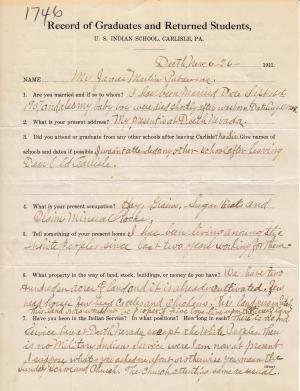 1746
Record of Graduates and Returned Students,
U. S. INDIAN SCHOOL, CARLISLE, PA.
Deeth Nev 6-26- 1911.
NAME Mr James Martin
1. Are you married and if so to whom? I have been Married Dote Sept 1st
my baby boy were died shortly after was born
2. What is your present address? My present is at Deeth Nevada.
3. Did you attend or graduate from any other schools after leaving Carlisle? Give names of
schools and dates if possible. I wasn't attended any other school after leaving
Dear Old Carlisle.
4. What is your present occupation? Hay, Grains, Sugar Beets and
Mineral
5. Tell something of your present home I have been living among the
White Peoples since last two years working for them
6. What property in the way of land, stock, buildings or money do you have? We have two
hundred acres of land and it is already cultivated. Few
head horse few head cows and chickens.
This land
7. Have you been in the Indian Service? In what positions? How long in each? There is no Indian
Service here at Deeth Nevada except the White Peoples. There
is no Military Indians Service were I am now at present
I suppose what you asked me about or otherwise you mean the
Sunday School and Church. The Church attend same as usual